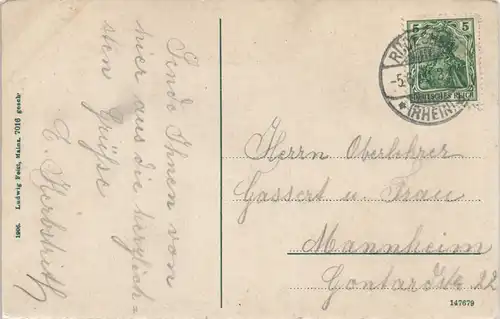 Sende Ihnen von
hier aus die herzlich=
sten Grüße
E. Herbstrith
5 5
DEUTSCHES REICH
(RHEIN)
Herrn Oberlehrer
Gassert u. Frau
Mannheim
Gontardstr 22
147679
1906. Ludwig Feist, Mainz. 7016 gesch.